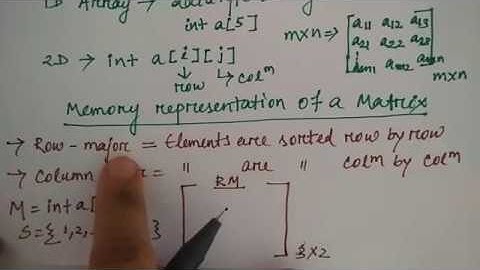 1D Array →
int a[5]
2D → int a[i][j]
↓row ↳colᵐ
m×n ⇒ [a11 a12 a13
a21 a22 a23
am1 am2 amn] m×n
Memory representation of a Matrix
→ Row-major = Elements are sorted row by row
→ Column = " are " colᵐ by colᵐ
M = int a[
S = { 1, 2, }
RM
3×2